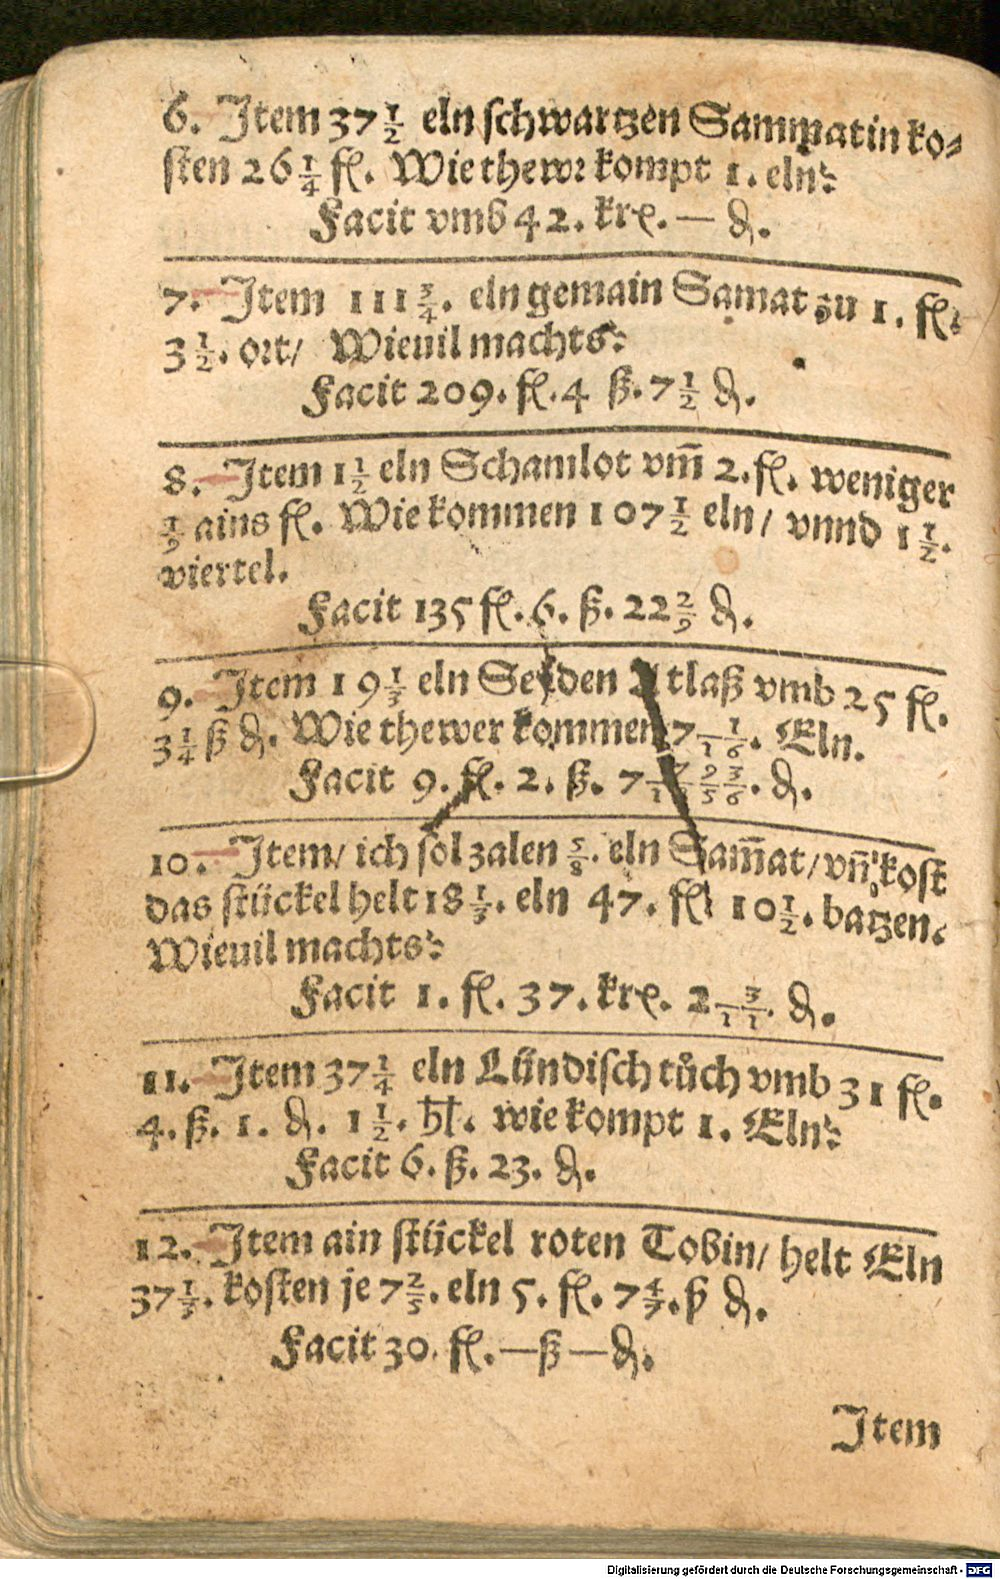 6. Item 37 1/2 eln schwartzen Sammatin ko⸗
sten 26 1/4 fl. Wie thewr kompt 1. eln?
Facit vmb 42. krx. — ₰.
7. Item 111 3/4. eln gemain Samat zu 1. fl.
3 1/2. ort/ Wieuil machts?
Facit 209. fl. 4 ß. 7 1/2 ₰.
8. Item 1 1/2 eln Schamlot vm̄ 2. fl. weniger
1/9 ains fl. Wie kommen 107 1/2 eln/ vnnd 1 1/2.
viertel.
Facit 135 fl. 6. ß. 22 2/9 ₰.
9. Item 19 1/3 eln Seyden Atlaß vmb 25 fl.
3 1/4 ß ₰. Wie thewer kommen 7 1/16. Eln.
Facit 9. fl. 2. ß. 7 ₰.
10. Item/ ich sol zalen 5/8. eln Sam̄at/ vn̄ kost
das stückel helt 18 1/3. eln 47. fl 10 1/2. batzen.
Wieuil machts?
Facit 1. fl. 37. krx. 2 3/11. ₰.
11. Item 37 1/4 eln Lündisch tůch vmb 31 fl.
4. ß. 1. ₰. 1 1/2. hl. wie kompt 1. Eln?
Facit 6. ß. 23. ₰.
12. Item ain stückel roten Tobin/ helt Eln
37 1/3. kosten je 7 2/5. eln 5. fl. 7 4/7. ß ₰.
Facit 30. fl. — ß — ₰.
Item
Digitalisierung gefördert durch die Deutsche Forschungsgemeinschaft - DFG